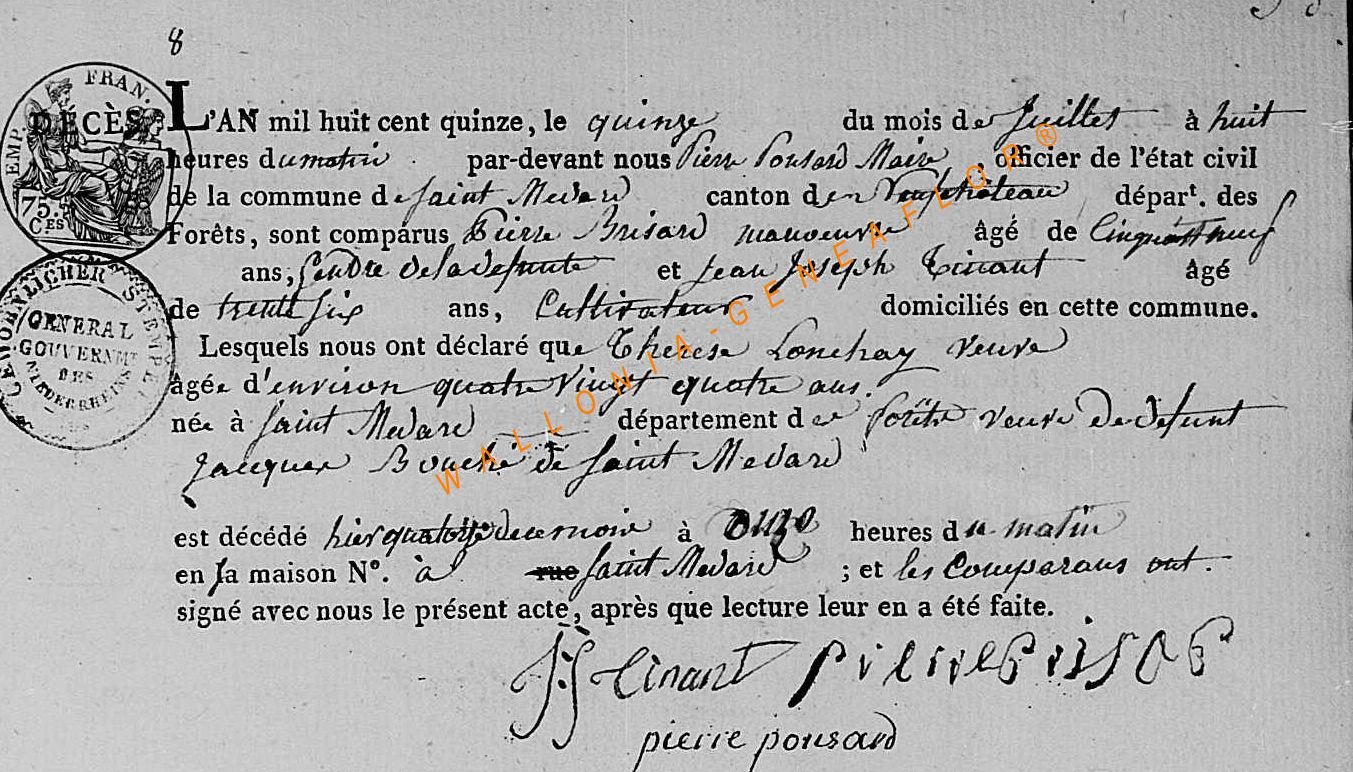 8
DÉCÈS. L'AN mil huit cent quinze, le quinze du mois de Juillet à huit
heures du matin par-devant nous Pierre Pousard Maire, officier de l'état civil
de la commune de Saint Medard canton de Neufchateau, départ. des
Forêts, sont comparus Pierre Brisard manoeuvre âgé de Cinquante neuf
ans, Gendre de la defunte et Jean Joseph Tinant âgé
de trente six ans, Cultivateur domiciliés en cette commune.
Lesquels nous ont déclaré que Therese Lonchay veuve
âgée d'environ quatre vingt quatre ans.
née à Saint Medard département de forêts veuve de defunt
Jacques Bouché de Saint Medard
est décédé hier quatorze de ce mois à onze heures du matin
en sa maison N°. à rue Saint Medard ; et les Comparans ont
signé avec nous le présent acte, après que lecture leur en a été faite.
JJ Tinant pierre brisard
pierre pousard
EMP. FRAN.
75.
CES
STEMPEL
GENERAL
GOUVERNMT
DES
NIEDERRHEINS
WALLONIA-GENEAFLOR®